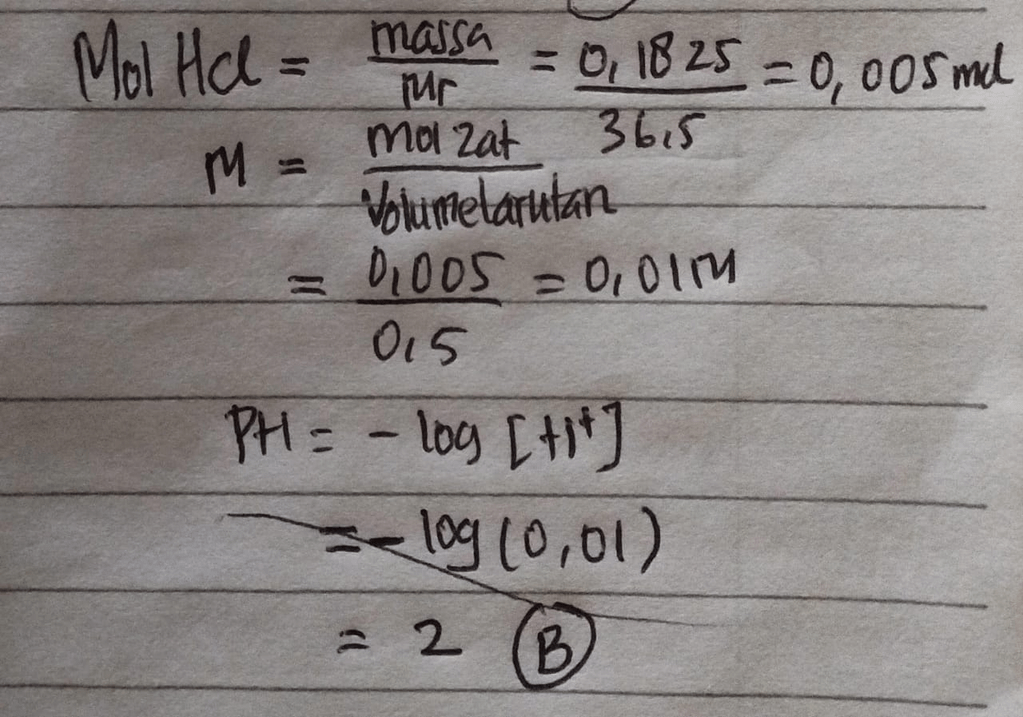 Mol HCl = massa / Mr = 0,1825 / 36,5 = 0,005 mol
M = mol zat / Volume larutan
= 0,005 / 0,5 = 0,01 M
PH = - log [H+]
= - log (0,01)
= 2 B